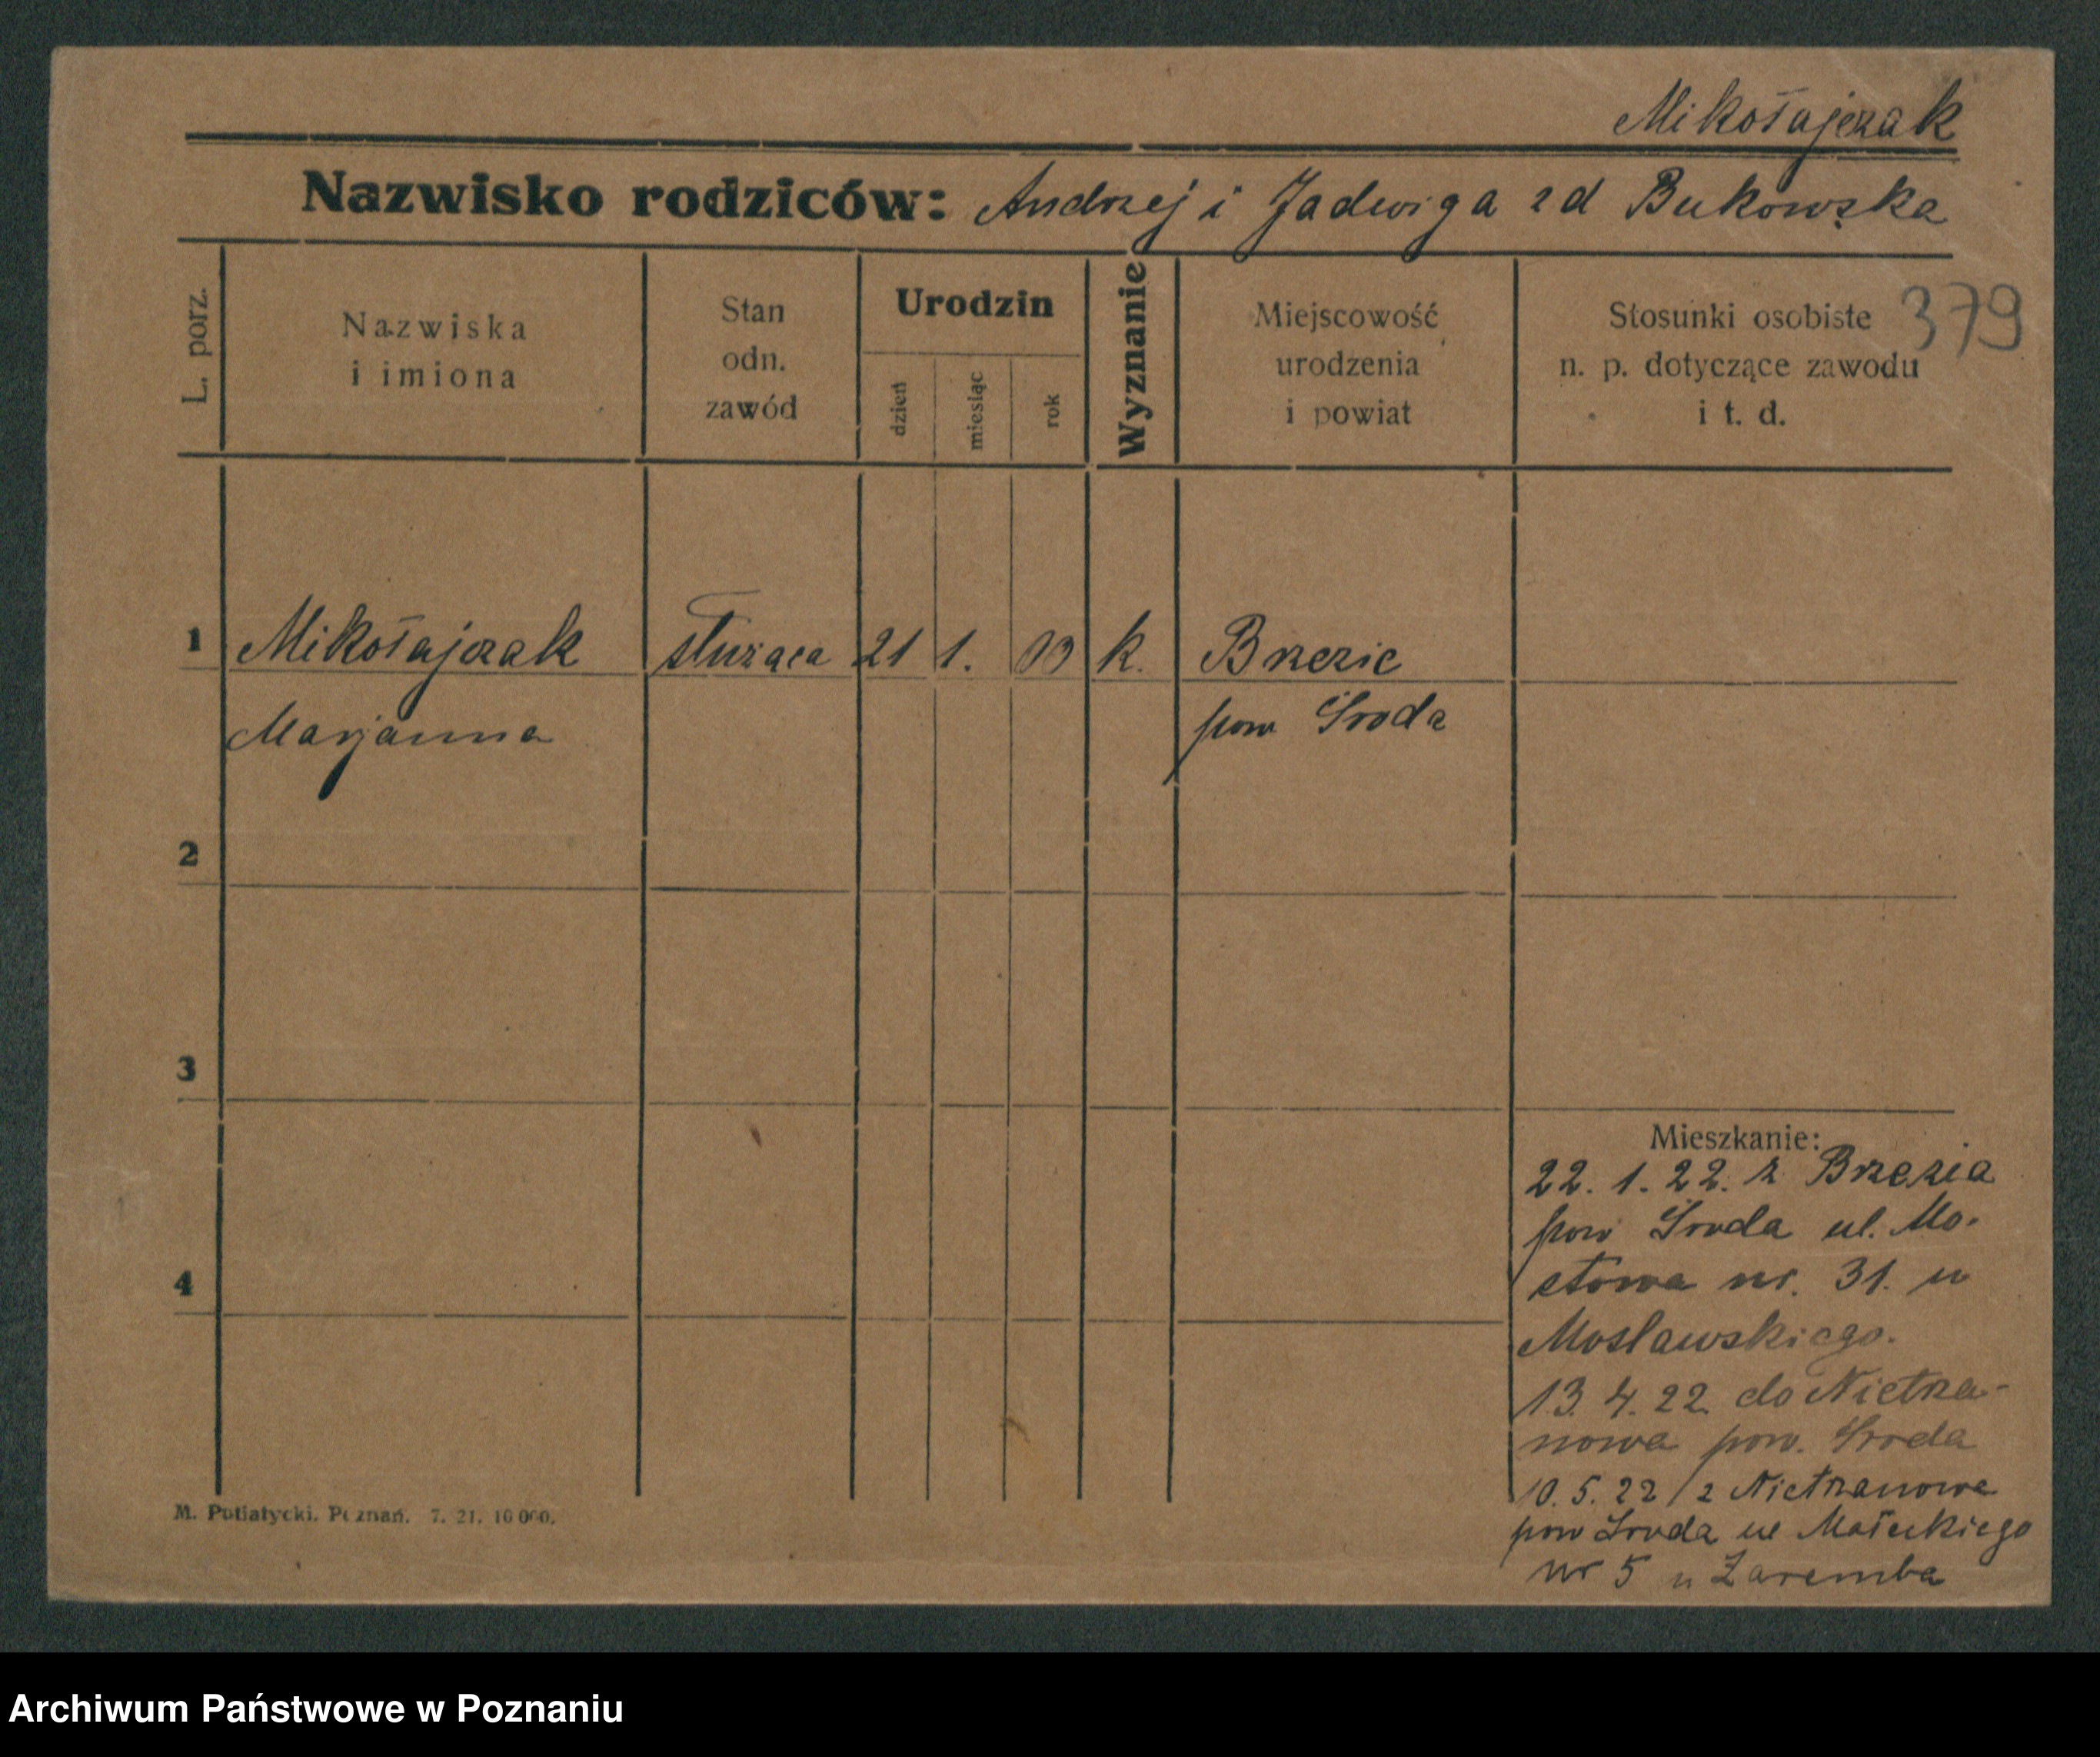 Mikołajczak
Nazwisko rodziców: Andrzej i Jadwiga zd Bukowska
L. porz.
Nazwiska
i imiona
Stan
odn.
zawód
Urodzin
dzień
miesiąc
rok
Wyznanie
Miejscowość
urodzenia
i powiat
Stosunki osobiste
n. p. dotyczące zawodu
i t. d.
379
1 Mikołajczak służąca 21 1. k. Brzezie
Marjanna pow Środa
2
3
4
Mieszkanie:
22. 1. 22. z Brzezia
pow Środa ul. Mo-
stowa nr. 31. u
Mosławskiego.
13. 4. 22. do Nietrza-
nowa pow. Środa
10. 5. 22 z Nietrzanowa
pow Środa ul Małeckiego
nr 5 u Zaremba
M. Putiatycki. Poznań. 7. 21. 10 000.
Archiwum Państwowe w Poznaniu